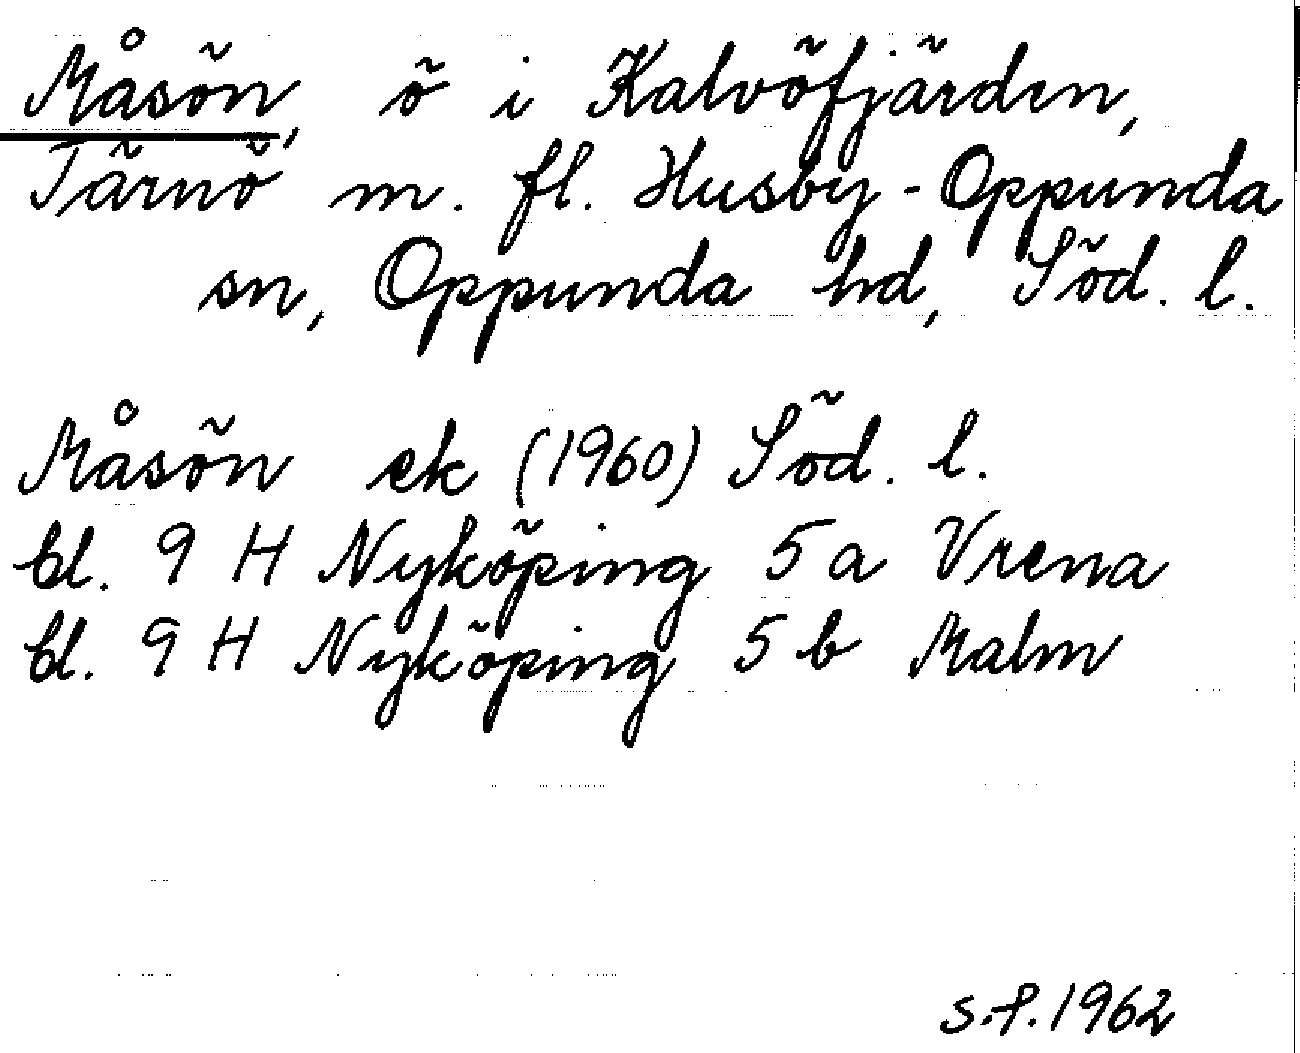 Måsön, ö i Kalvöfjärden,
Tärnö m. fl. Husby-Oppunda
sn, Oppunda hd, Söd. l.
Måsön ek (1960) Söd. l.
bl. 9 H Nyköping 5 a Vrena
bl. 9 H Nyköping 5 b Malm
s.f. 1962